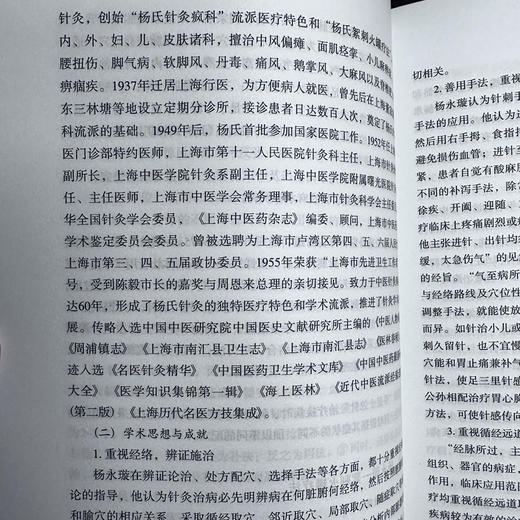 针灸，创始“杨氏针灸疯科”流派医疗特色和“杨氏絮刺火罐疗法
内、外、妇、儿、皮肤诸科，擅治中风偏瘫、面肌痉挛、小儿麻痹
腰扭伤、脚气病、软脚风、丹毒、痛风、鹅掌风、大麻风以及脊椎
痹痼疾。1937年迁居上海行医，为方便病人就医，曾先后在上海
东三林塘等地设立定期分诊所，接诊患者日达数百人次，奠定了杨
科流派的基础。1949年后，杨氏首批参加国家医院工作。1952年任上
医门诊部特约医师，上海市第十一人民医院针灸科主任，上海市针灸
副所长，上海中医学院针灸系副主任，上海中医学院附属曙光医院针
任、主任医师，上海市中医学会常务理事，上海市针灸科学会主任委
华全国针灸学会委员，《上海中医药杂志》编委、顾问，上海市中医
学术鉴定委员会委员。曾被选聘为上海市卢湾区第四、五、六届人民
上海市第三、四、五届政协委员。1955年荣获“上海市先进卫生工作者
号，受到陈毅市长的嘉奖与周恩来总理的亲切接见。致力于中医针灸
达60年，形成了杨氏针灸的独特医疗特色和学术流派，推进了针灸学
展。传略入选中国中医研究院中国医史文献研究所主编的《中医人物
《周浦镇志》《上海市南汇县卫生志》《上海市南汇县志》《医林春秋
迹人选《名医针灸精华》《中国医药卫生学术文库》《中国中医药最
大全》《医学知识集锦第一辑》《海上医林》《近代中医流派经验
（第二版）《上海历代名医方技集成》。
（二）学术思想与成就
1. 重视经络，辨证施治
杨永璇在辨证论治、处方配穴、选择手法等各方面，都十分重视
论的指导，他认为针灸治病必先明辨病在何脏腑何经络，然后按
和腧穴的相应关系，采取循经取穴、邻近取穴、局部取穴、随症取穴
切相关。
2. 善用手法，重视
杨永璇认为针刺手
手法的应用。他认为进
然后用右手拇、食指
避免损伤血管；进针至
紧，患者自觉有酸麻
不同的补泻手法，除
徐疾、开阖、迎随、
疗临床上疼痛剧烈或
他主张进针、出针均
缓，太急伤气”的见
的经旨。“气至病所
与经络路线及穴位性
调整手法，就能使
而异。如针治小儿或
刺久留针，也不宜
穴能和胃止痛兼补气
针法，使足三里针感
公孙相配治疗胃心胸
方法，可使针感传向
3. 重视循经远道
“经脉所过，主
组织、器官的病症，
作用，临床应用范围
疗均重视循经远道
疾病较为有效的